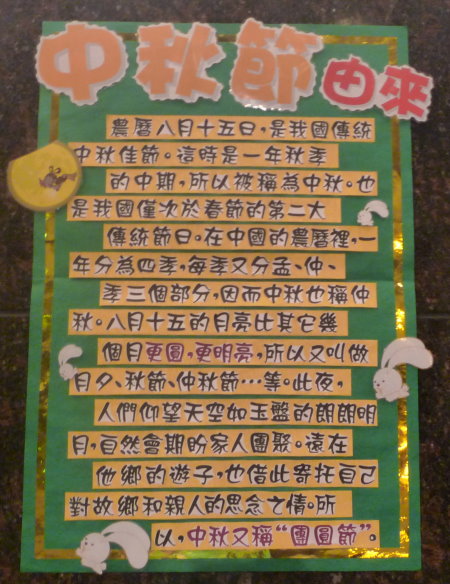 中秋節由來
農曆八月十五日，是我國傳統
中秋佳節。這時是一年秋季
的中期，所以被稱為中秋。也
是我國僅次於春節的第二大
傳統節日。在中國的農曆裡，一
年分為四季，每季又分孟、仲、
季三個部分，因而中秋也稱仲
秋。八月十五的月亮比其它幾
個月更圓，更明亮，所以又叫做
月夕、秋節、仲秋節…等。此夜，
人們仰望天空如玉盤的朗朗明
月，自然會期盼家人團聚。遠在
他鄉的遊子，也借此寄托自己
對故鄉和親人的思念之情。所
以，中秋又稱“團圓節”。